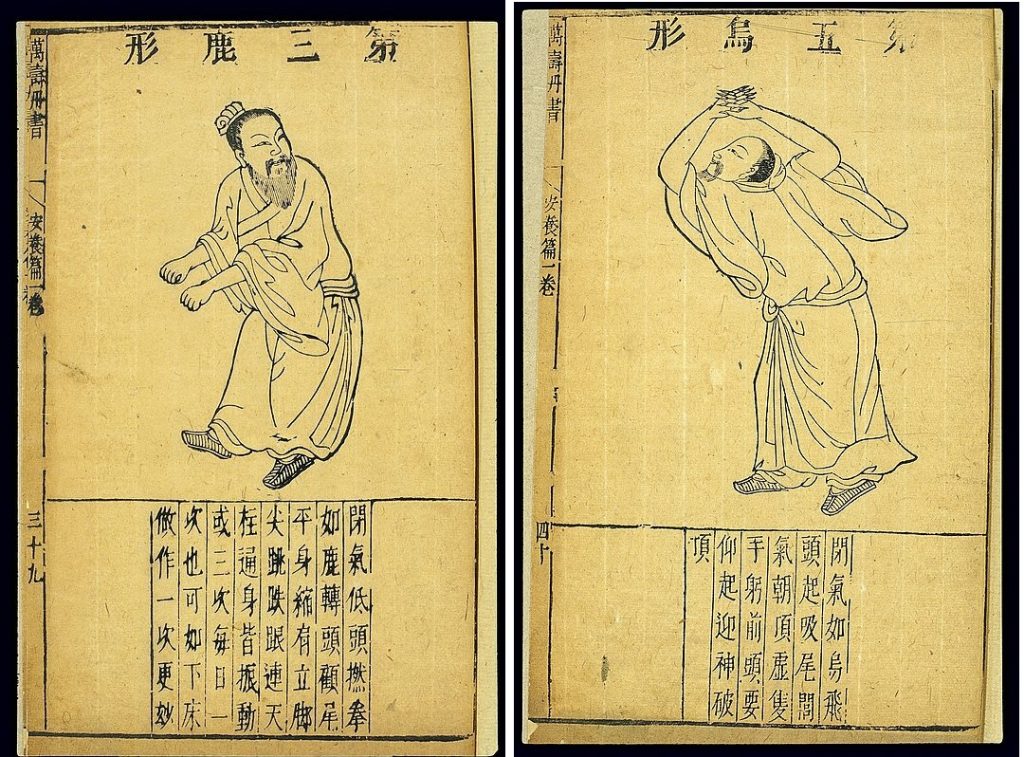 第三鹿形
閉氣低頭撚拳
如鹿轉頭顧尾
平身縮有立脚
尖跳跌跟連天
柱通身皆振動
或三次每日一
次也可如下床
做作一次更妙
萬壽丹書
安養篇一卷
三十九
第五鳥形
閉氣如鳥飛
頭起吸尾閭
氣朝頂虛隻
手躬前頭要
仰起迎神破
頂
萬壽丹書
安養篇一卷
四十